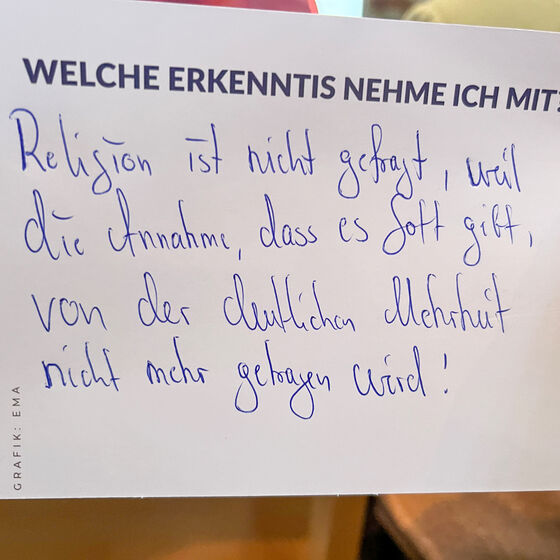 WELCHE ERKENNTIS NEHME ICH MIT?
Religion ist nicht gefragt, weil
die Annahme, dass es Gott gibt,
von der deutlichen Mehrheit
nicht mehr getragen wird!
GRAFIK: EMA